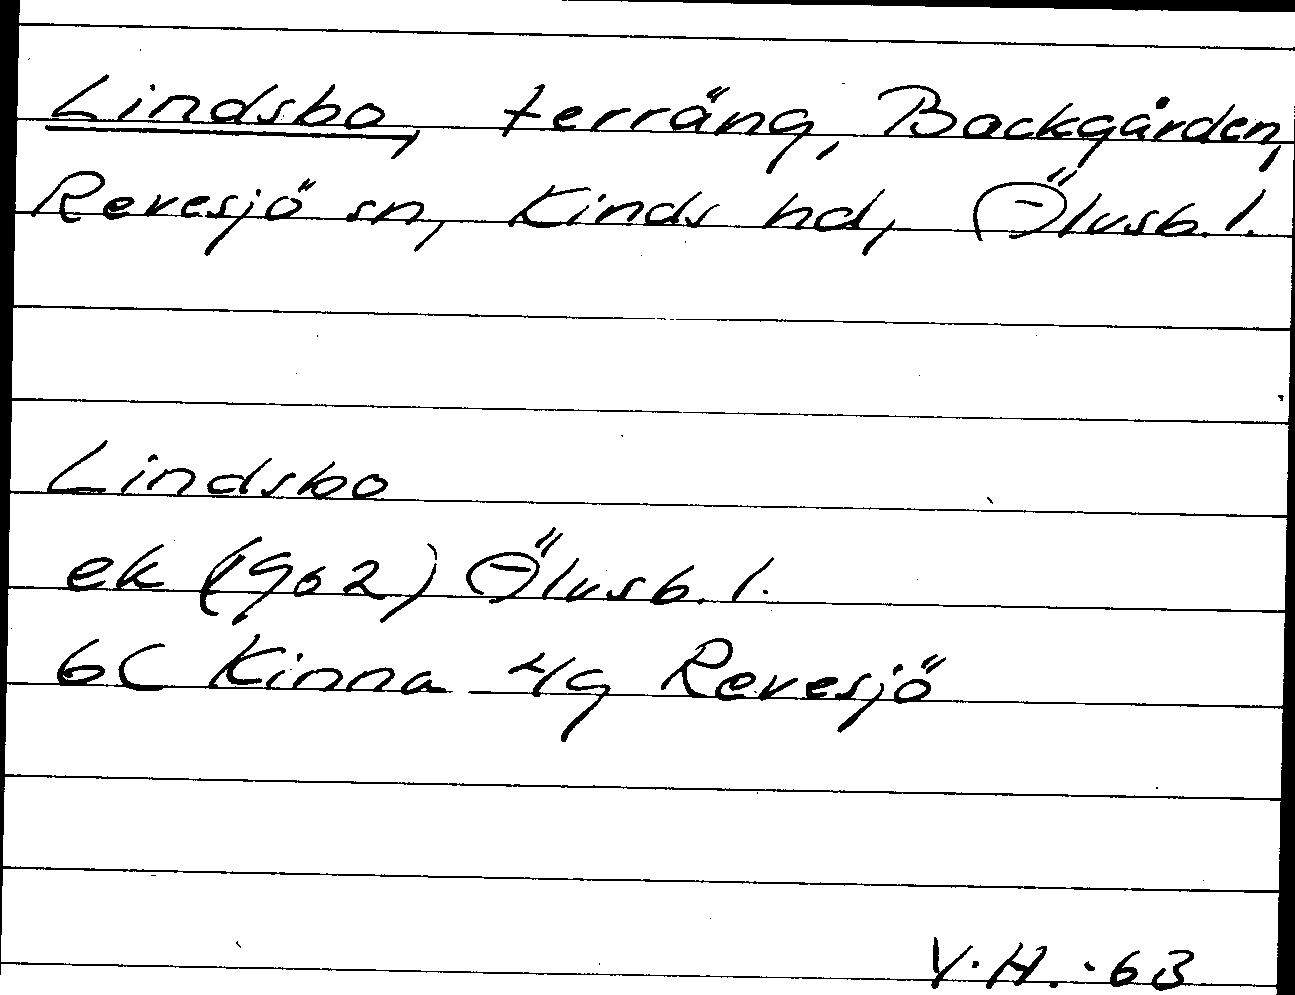 Lindsbo, terräng, Backgården,
Revesjö sn, Kinds hd, Älvsb. l.
Lindsbo
ek (1962) Älvsb. l.
6C Kinna 4g Revesjö
V.H. -63